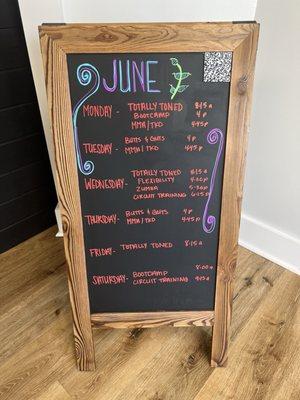 JUNE
MONDAY - TOTALLY TONED 8:15 A
BOOTCAMP 4 P
MMA/TKD 4:45 P
TUESDAY - BUTTS & GUTS 4 P
MMA/TKD 4:45 P
WEDNESDAY - TOTALLY TONED 8:15 A
FLEXIBILITY 4:30 P
ZUMBA 5:30 P
CIRCUIT TRAINING 6:15 P
THURSDAY - BUTTS & GUTS 4 P
MMA/TKD 4:45 P
FRIDAY - TOTALLY TONED 8:15 A
SATURDAY - BOOTCAMP 8:00 A
CIRCUIT TRAINING